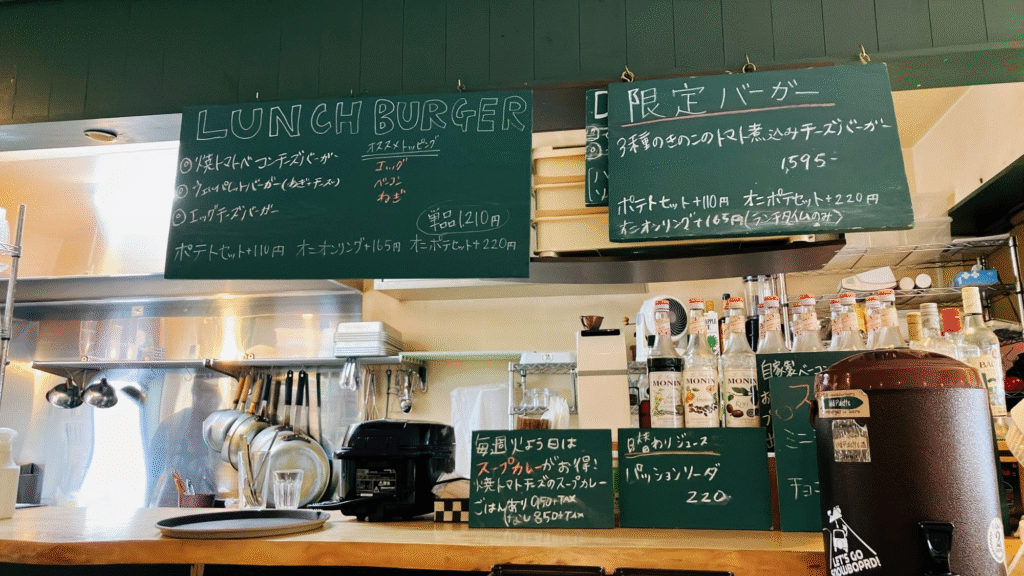 LUNCH BURGER
① 焼トマトベーコンチーズバーガー
② ウェルペレットバーガー(ねぎチーズ)
③ エッグチーズバーガー
オススメトッピング
エッグ
ベーコン
ねぎ
単品1,210円
ポテトセット+110円 オニオンリング+165円 オニポテセット+220円
限定バーガー
3種のきのこのトマト煮込みチーズバーガー
1,595-
ポテトセット+110円 オニポテセット+220円
オニオンリング+165円(ランチタイムのみ)
毎週りょう日は
スープカレーがお得!
焼トマトチーズのスープカレー
ごはんあり 950+TAX
なし 850+TAX
日替わりジュース
パッションソーダ
220
自家製ベーコン
ス
ミニ
チョコ
MONIN
MONIN
MONIN
LET'S GO
SNOWBOARD!